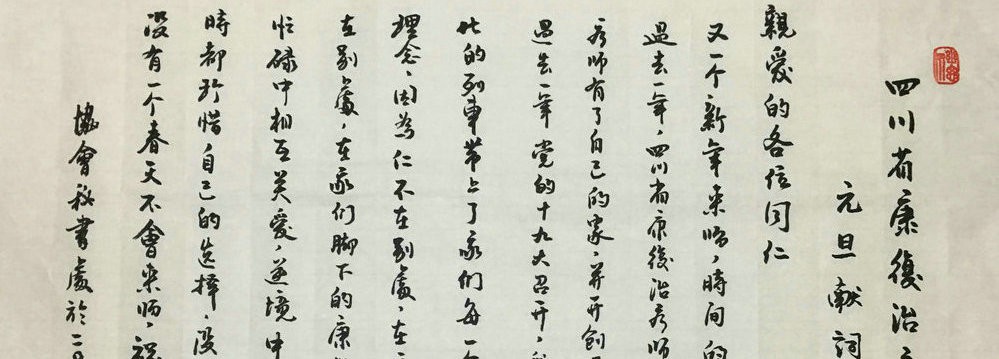 四川省康復治
元旦献詞
親愛的各位同仁
又一个新年来临，時間的
過去一年，四川省康復治療師
療師有了自己的家，并开創
過去一年，党的十九大召开，
此的列車带上了我们每一个
理念，因為仁不在别處，在
在别處，在我们脚下的康
忙碌中相互关愛，逆境中
時都珍惜自己的选擇，没
没有一个春天不會来临，祝
協會秘書處於二〇